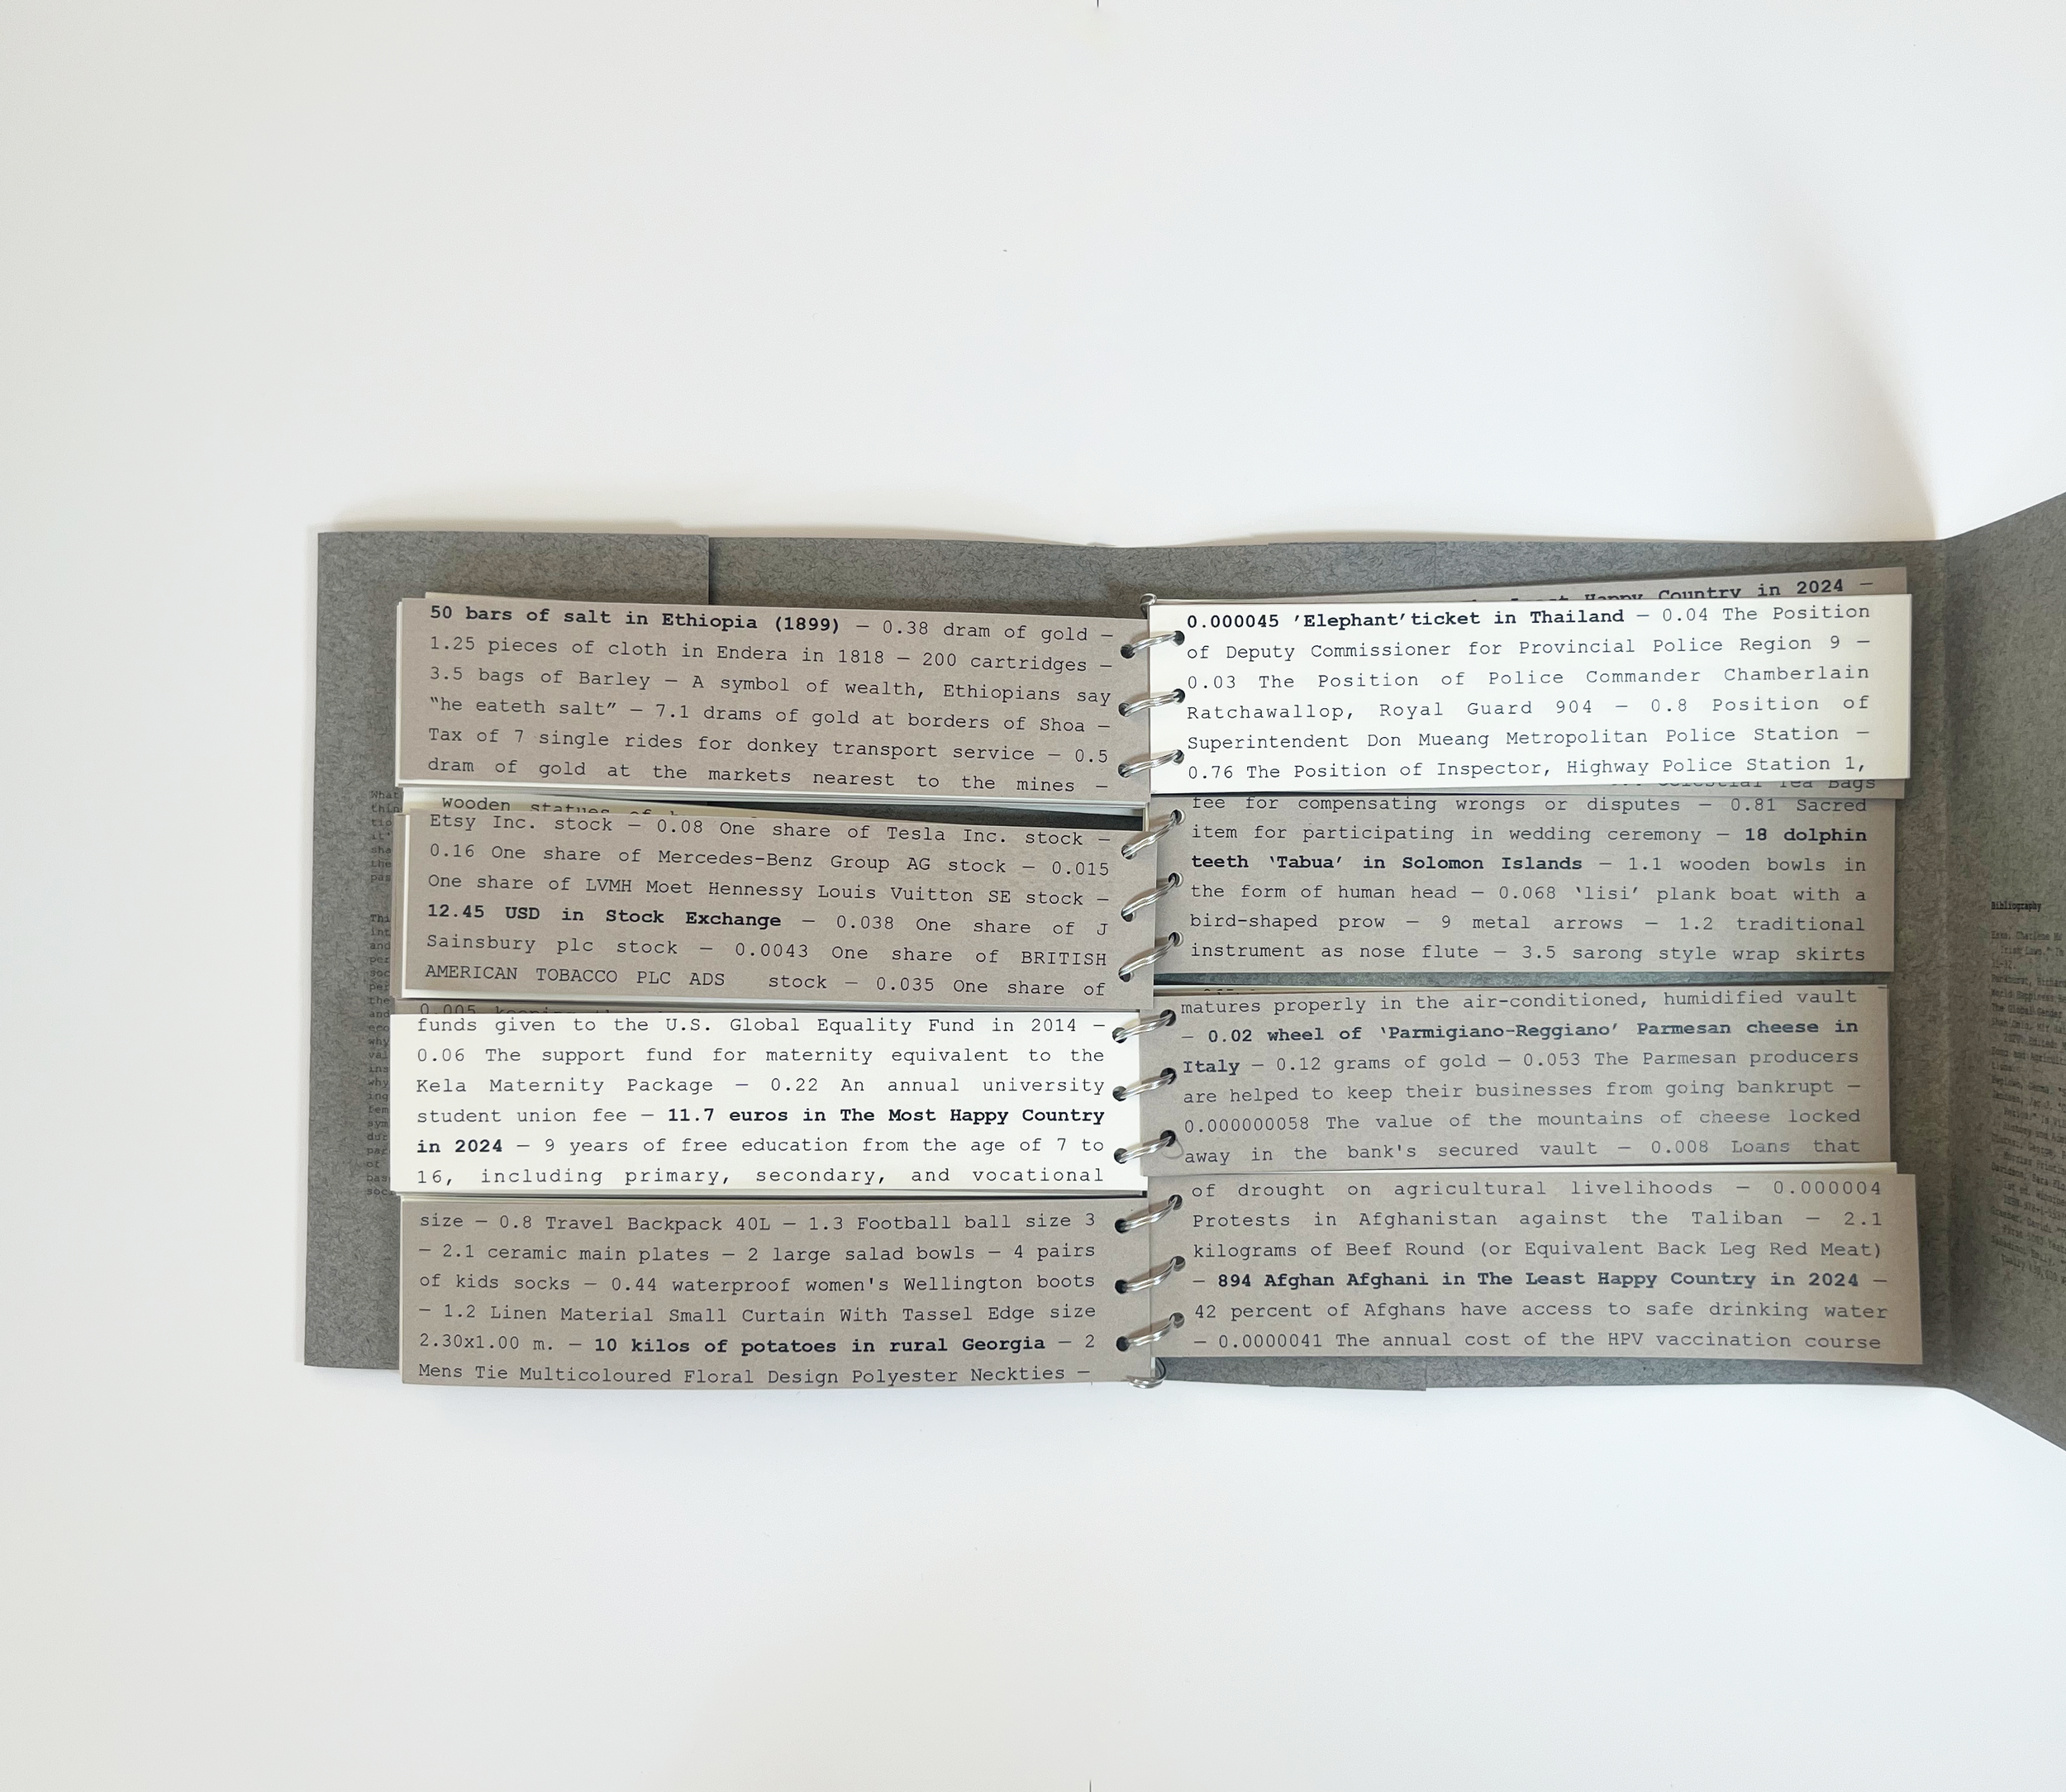 50 bars of salt in Ethiopia (1899) — 0.38 dram of gold —
1.25 pieces of cloth in Endera in 1818 — 200 cartridges —
3.5 bags of Barley — A symbol of wealth, Ethiopians say
“he eateth salt” — 7.1 drams of gold at borders of Shoa —
Tax of 7 single rides for donkey transport service — 0.5
dram of gold at the markets nearest to the mines —
wooden statues of
Etsy Inc. stock — 0.08 One share of Tesla Inc. stock —
0.16 One share of Mercedes-Benz Group AG stock — 0.015
One share of LVMH Moet Hennessy Louis Vuitton SE stock —
12.45 USD in Stock Exchange — 0.038 One share of J
Sainsbury plc stock — 0.0043 One share of BRITISH
AMERICAN TOBACCO PLC ADS stock — 0.035 One share of
0.005 keeping
funds given to the U.S. Global Equality Fund in 2014 —
0.06 The support fund for maternity equivalent to the
Kela Maternity Package — 0.22 An annual university
student union fee — 11.7 euros in The Most Happy Country
in 2024 — 9 years of free education from the age of 7 to
16, including primary, secondary, and vocational
size — 0.8 Travel Backpack 40L — 1.3 Football ball size 3
— 2.1 ceramic main plates — 2 large salad bowls — 4 pairs
of kids socks — 0.44 waterproof women's Wellington boots
— 1.2 Linen Material Small Curtain With Tassel Edge size
2.30x1.00 m. — 10 kilos of potatoes in rural Georgia — 2
Mens Tie Multicoloured Floral Design Polyester Neckties —
Least Happy Country in 2024 —
0.000045 ’Elephant’ticket in Thailand — 0.04 The Position
of Deputy Commissioner for Provincial Police Region 9 —
0.03 The Position of Police Commander Chamberlain
Ratchawallop, Royal Guard 904 — 0.8 Position of
Superintendent Don Mueang Metropolitan Police Station —
0.76 The Position of Inspector, Highway Police Station 1,
Celestial Tea Bags
fee for compensating wrongs or disputes — 0.81 Sacred
item for participating in wedding ceremony — 18 dolphin
teeth ‘Tabua’ in Solomon Islands — 1.1 wooden bowls in
the form of human head — 0.068 ‘lisi’ plank boat with a
bird-shaped prow — 9 metal arrows — 1.2 traditional
instrument as nose flute — 3.5 sarong style wrap skirts
matures properly in the air-conditioned, humidified vault
— 0.02 wheel of ‘Parmigiano-Reggiano’ Parmesan cheese in
Italy — 0.12 grams of gold — 0.053 The Parmesan producers
are helped to keep their businesses from going bankrupt —
0.000000058 The value of the mountains of cheese locked
away in the bank's secured vault — 0.008 Loans that
of drought on agricultural livelihoods — 0.000004
Protests in Afghanistan against the Taliban — 2.1
kilograms of Beef Round (or Equivalent Back Leg Red Meat)
— 894 Afghan Afghani in The Least Happy Country in 2024 —
42 percent of Afghans have access to safe drinking water
— 0.0000041 The annual cost of the HPV vaccination course
Bibliography